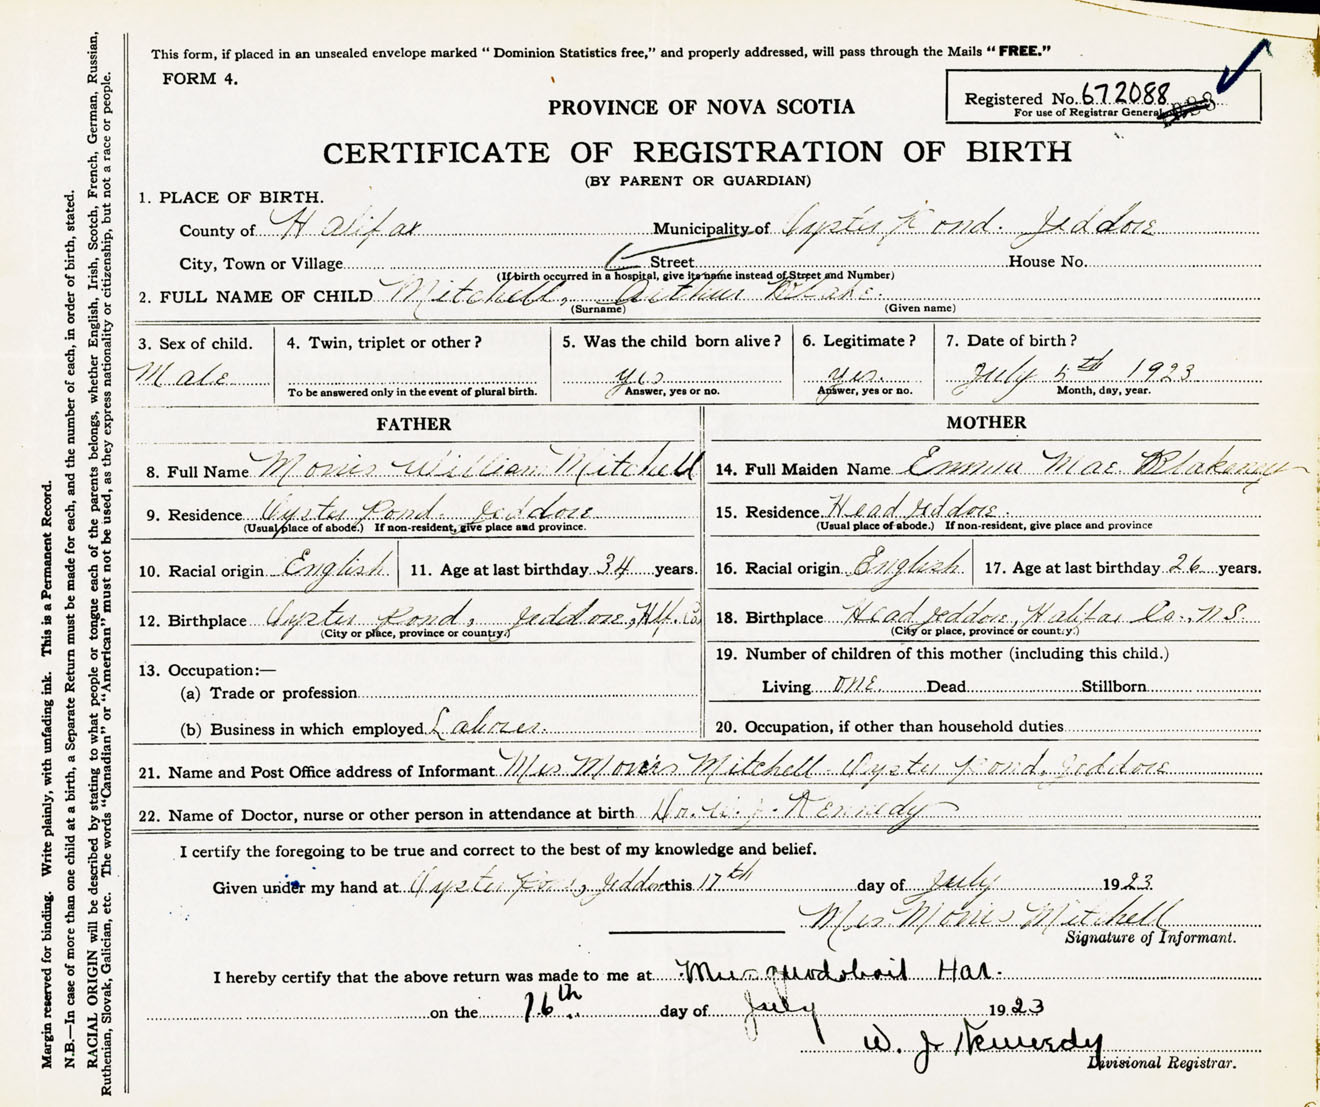 This form, if placed in an unsealed envelope marked "Dominion Statistics free," and properly addressed, will pass through the Mails "FREE."
FORM 4.
Registered No. 672088
For use of Registrar General
PROVINCE OF NOVA SCOTIA
CERTIFICATE OF REGISTRATION OF BIRTH
(BY PARENT OR GUARDIAN)
1. PLACE OF BIRTH.
County of Halifax Municipality of Oyster Pond. Jeddore
City, Town or Village Street House No.
(If birth occurred in a hospital, give its name instead of Street and Number)
2. FULL NAME OF CHILD Mitchell, Arthur Blake.
(Surname) (Given name)
3. Sex of child. 4. Twin, triplet or other? 5. Was the child born alive? 6. Legitimate? 7. Date of birth?
Male yes yes. July 5th 1923
To be answered only in the event of plural birth. Answer, yes or no. Answer, yes or no. Month, day, year.
FATHER MOTHER
8. Full Name Morris William Mitchell 14. Full Maiden Name Emma Mae Blakeney
9. Residence Oyster Pond. Jeddore 15. Residence Head Jeddore.
(Usual place of abode.) If non-resident, give place and province. (Usual place of abode.) If non-resident, give place and province
10. Racial origin English 11. Age at last birthday 34 years. 16. Racial origin English 17. Age at last birthday 26 years.
12. Birthplace Oyster Pond, Jeddore, Hfx. 18. Birthplace Head Jeddore, Halifax Co., N.S.
(City or place, province or country.) (City or place, province or country.)
13. Occupation:— 19. Number of children of this mother (including this child.)
(a) Trade or profession Living one. Dead Stillborn
(b) Business in which employed Laborer. 20. Occupation, if other than household duties
21. Name and Post Office address of Informant Mrs Morris Mitchell- Oyster Pond, Jeddore
22. Name of Doctor, nurse or other person in attendance at birth Dr. W. J. Kennedy
I certify the foregoing to be true and correct to the best of my knowledge and belief.
Given under my hand at Oyster Pond, Jeddore this 17th day of July 1923
Mrs. Morris Mitchell
Signature of Informant.
I hereby certify that the above return was made to me at Musquodoboit Har.
on the 16th day of July 1923
W. J. Kennedy
Divisional Registrar.
Margin reserved for binding. Write plainly, with unfading ink. This is a Permanent Record.
N.B.—In case of more than one child at a birth, a Separate Return must be made for each, and the number of each, in order of birth, stated.
RACIAL ORIGIN will be described by stating to what people or tongue each of the parents belongs, whether English, Irish, Scotch, French, German, Russian,
Ruthenian, Slovak, Galician, etc. The words "Canadian" or "American" must not be used, as they express nationality or citizenship, but not a race or people.